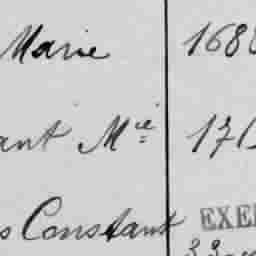 Marie 1688
ant Mie 171
s Constant EXE
33